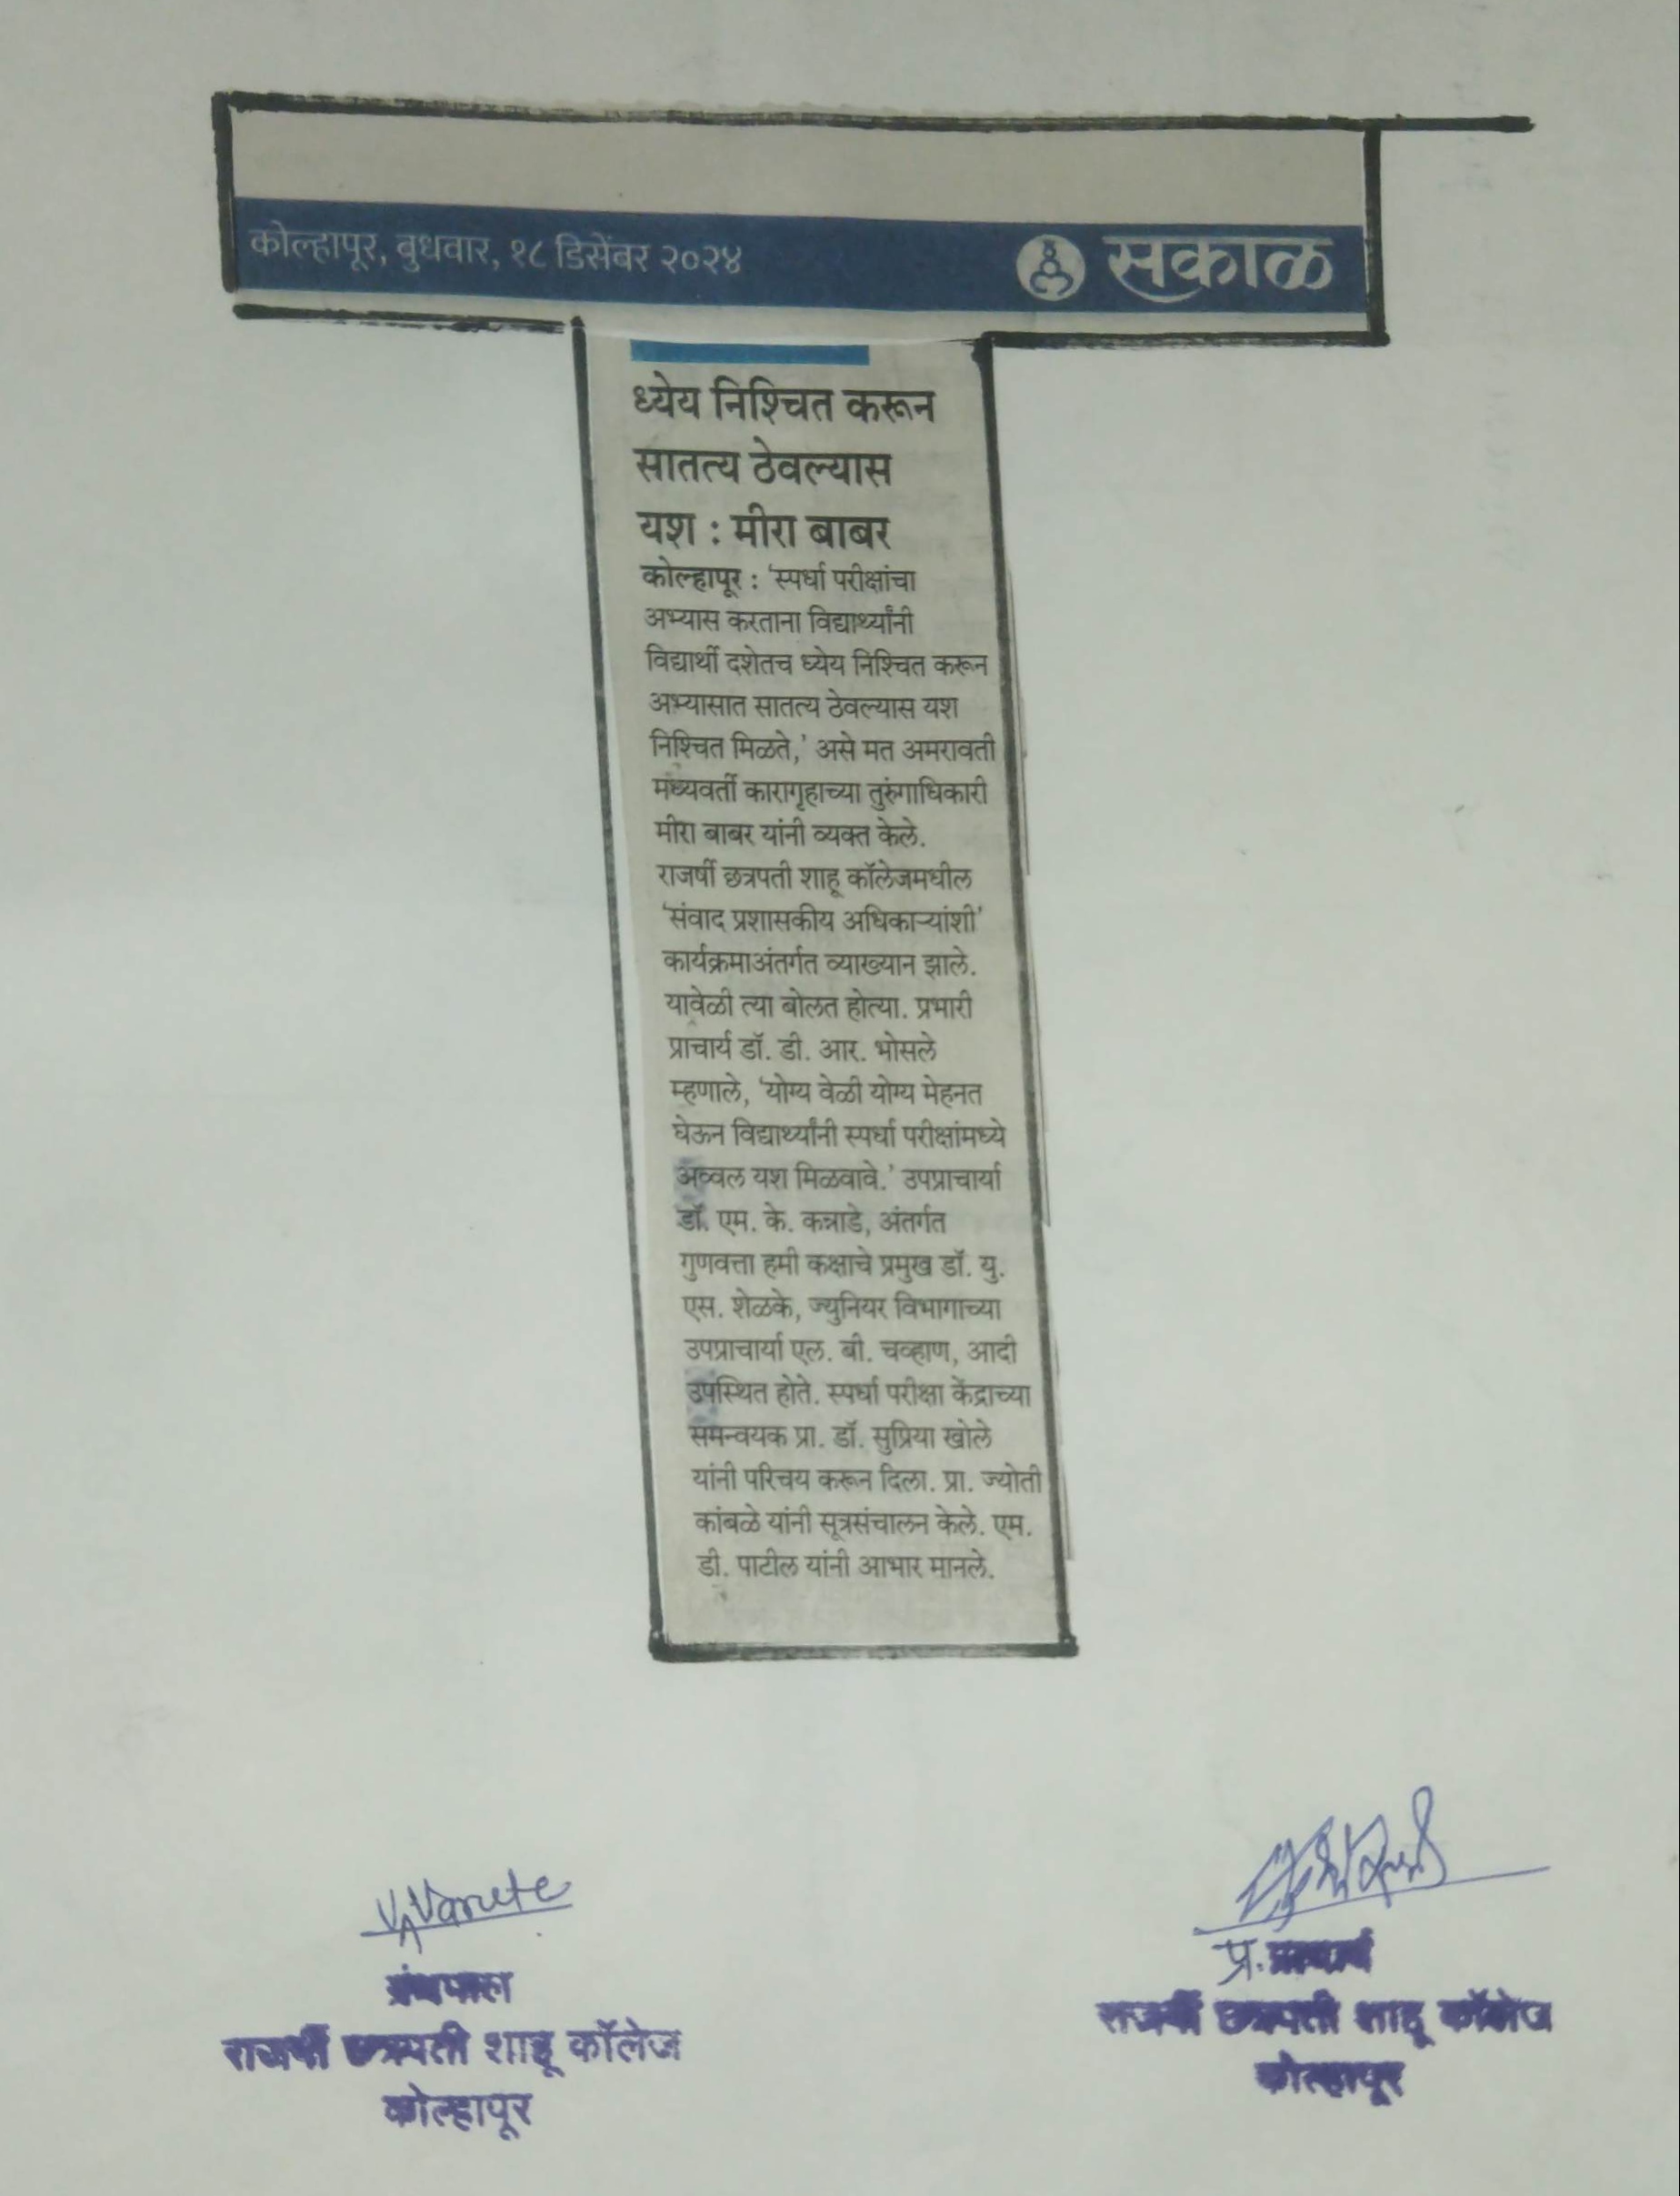 कोल्हापूर, बुधवार, १८ डिसेंबर २०२४
सकाळ
ध्येय निश्चित करून
सातत्य ठेवल्यास
यश : मीरा बाबर
कोल्हापूर : 'स्पर्धा परीक्षांचा
अभ्यास करताना विद्यार्थ्यांनी
विद्यार्थी दशेतच ध्येय निश्चित करून
अभ्यासात सातत्य ठेवल्यास यश
निश्चित मिळते,' असे मत अमरावती
मध्यवर्ती कारागृहाच्या तुरुंगाधिकारी
मीरा बाबर यांनी व्यक्त केले.
राजर्षी छत्रपती शाहू कॉलेजमधील
'संवाद प्रशासकीय अधिकाऱ्यांशी'
कार्यक्रमाअंतर्गत व्याख्यान झाले.
यावेळी त्या बोलत होत्या. प्रभारी
प्राचार्य डॉ. डी. आर. भोसले
म्हणाले, 'योग्य वेळी योग्य मेहनत
घेऊन विद्यार्थ्यांनी स्पर्धा परीक्षांमध्ये
अव्वल यश मिळवावे.' उपप्राचार्या
डॉ. एम. के. कन्नाडे, अंतर्गत
गुणवत्ता हमी कक्षाचे प्रमुख डॉ. यु.
एस. शेळके, ज्युनियर विभागाच्या
उपप्राचार्या एल. बी. चव्हाण, आदी
उपस्थित होते. स्पर्धा परीक्षा केंद्राच्या
समन्वयक प्रा. डॉ. सुप्रिया खोले
यांनी परिचय करून दिला. प्रा. ज्योती
कांबळे यांनी सूत्रसंचालन केले. एम.
डी. पाटील यांनी आभार मानले.
ग्रंथपाल
राजर्षी छत्रपती शाहू कॉलेज
कोल्हापूर
प्र. प्राचार्य
राजर्षी छत्रपती शाहू कॉलेज
कोल्हापूर